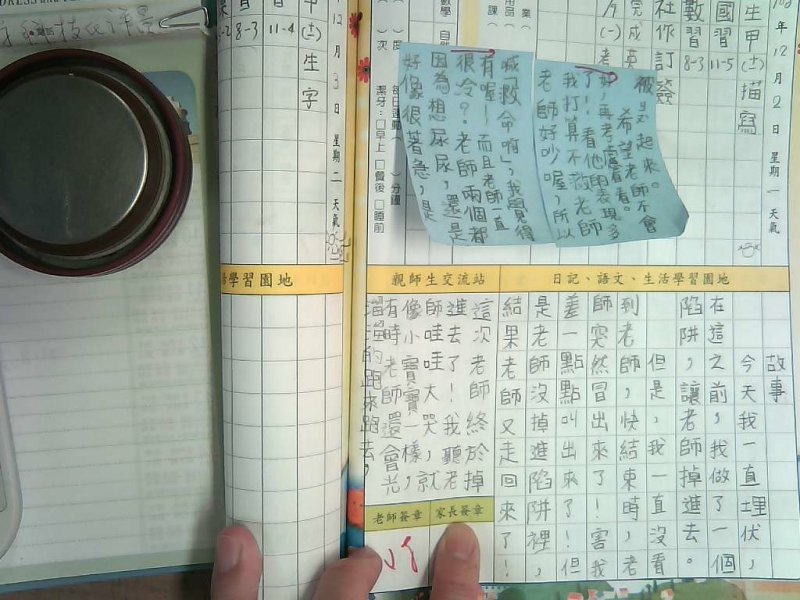 年12月2日 星期一 天氣
生甲(土)描寫
國習11-5
數習8-3
社作訂發
完成英
日記、語文、生活學習園地
故事
今天我一直埋伏，
在這之前，我做了一個
陷阱，讓老師掉進去。
但是，我一直沒看
到老師，快結束時，老
師突然冒出來了！害我
差一點點叫出來了！但
是老師沒掉進陷阱裡，
結果老師又走回來了！
親師生交流站
這次老師終於掉
進去了！我聽老
師哇哇大哭，就
像小寶寶一樣，
有時老師還會光
溜溜的跑來跑去，
好像很著急，是
因為想尿尿，還是
很冷？老師兩個都
有喔！而且老師一直
喊「救命啊」，我覺得
老師好吵喔，所以
我打算不救老師
了！看他的表現多
好！再考慮看看。
希望老師不會
起來。
家長簽章
老師簽章
每日運動 分鐘
潔牙：□早上 □餐後 □睡前
12月3日 星期二 天氣
甲(土)生字
11-4
8-3
學習園地